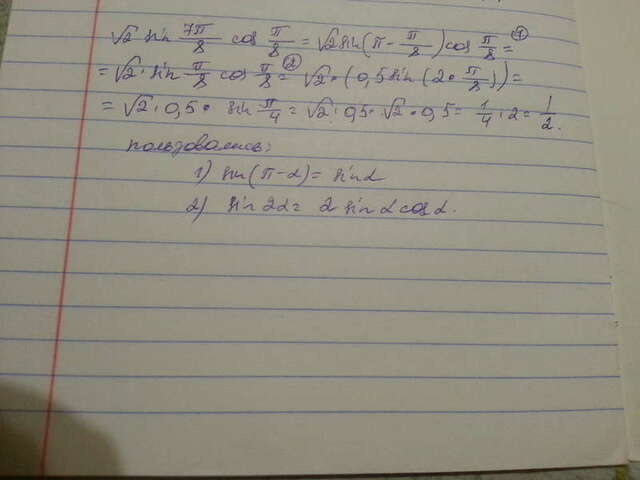 √2 sin 7π/8 cos π/8 = √2 sin(π - π/8) cos π/8 = ①
= √2 · sin π/8 cos π/8 = ② √2 · (0,5 sin (2 · π/8)) =
= √2 · 0,5 · sin π/4 = √2 · 0,5 · √2 · 0,5 = 1/4 · 2 = 1/2.
пользовались:
1) sin(π-α) = sinα
2) sin 2α = 2 sin α cos α.